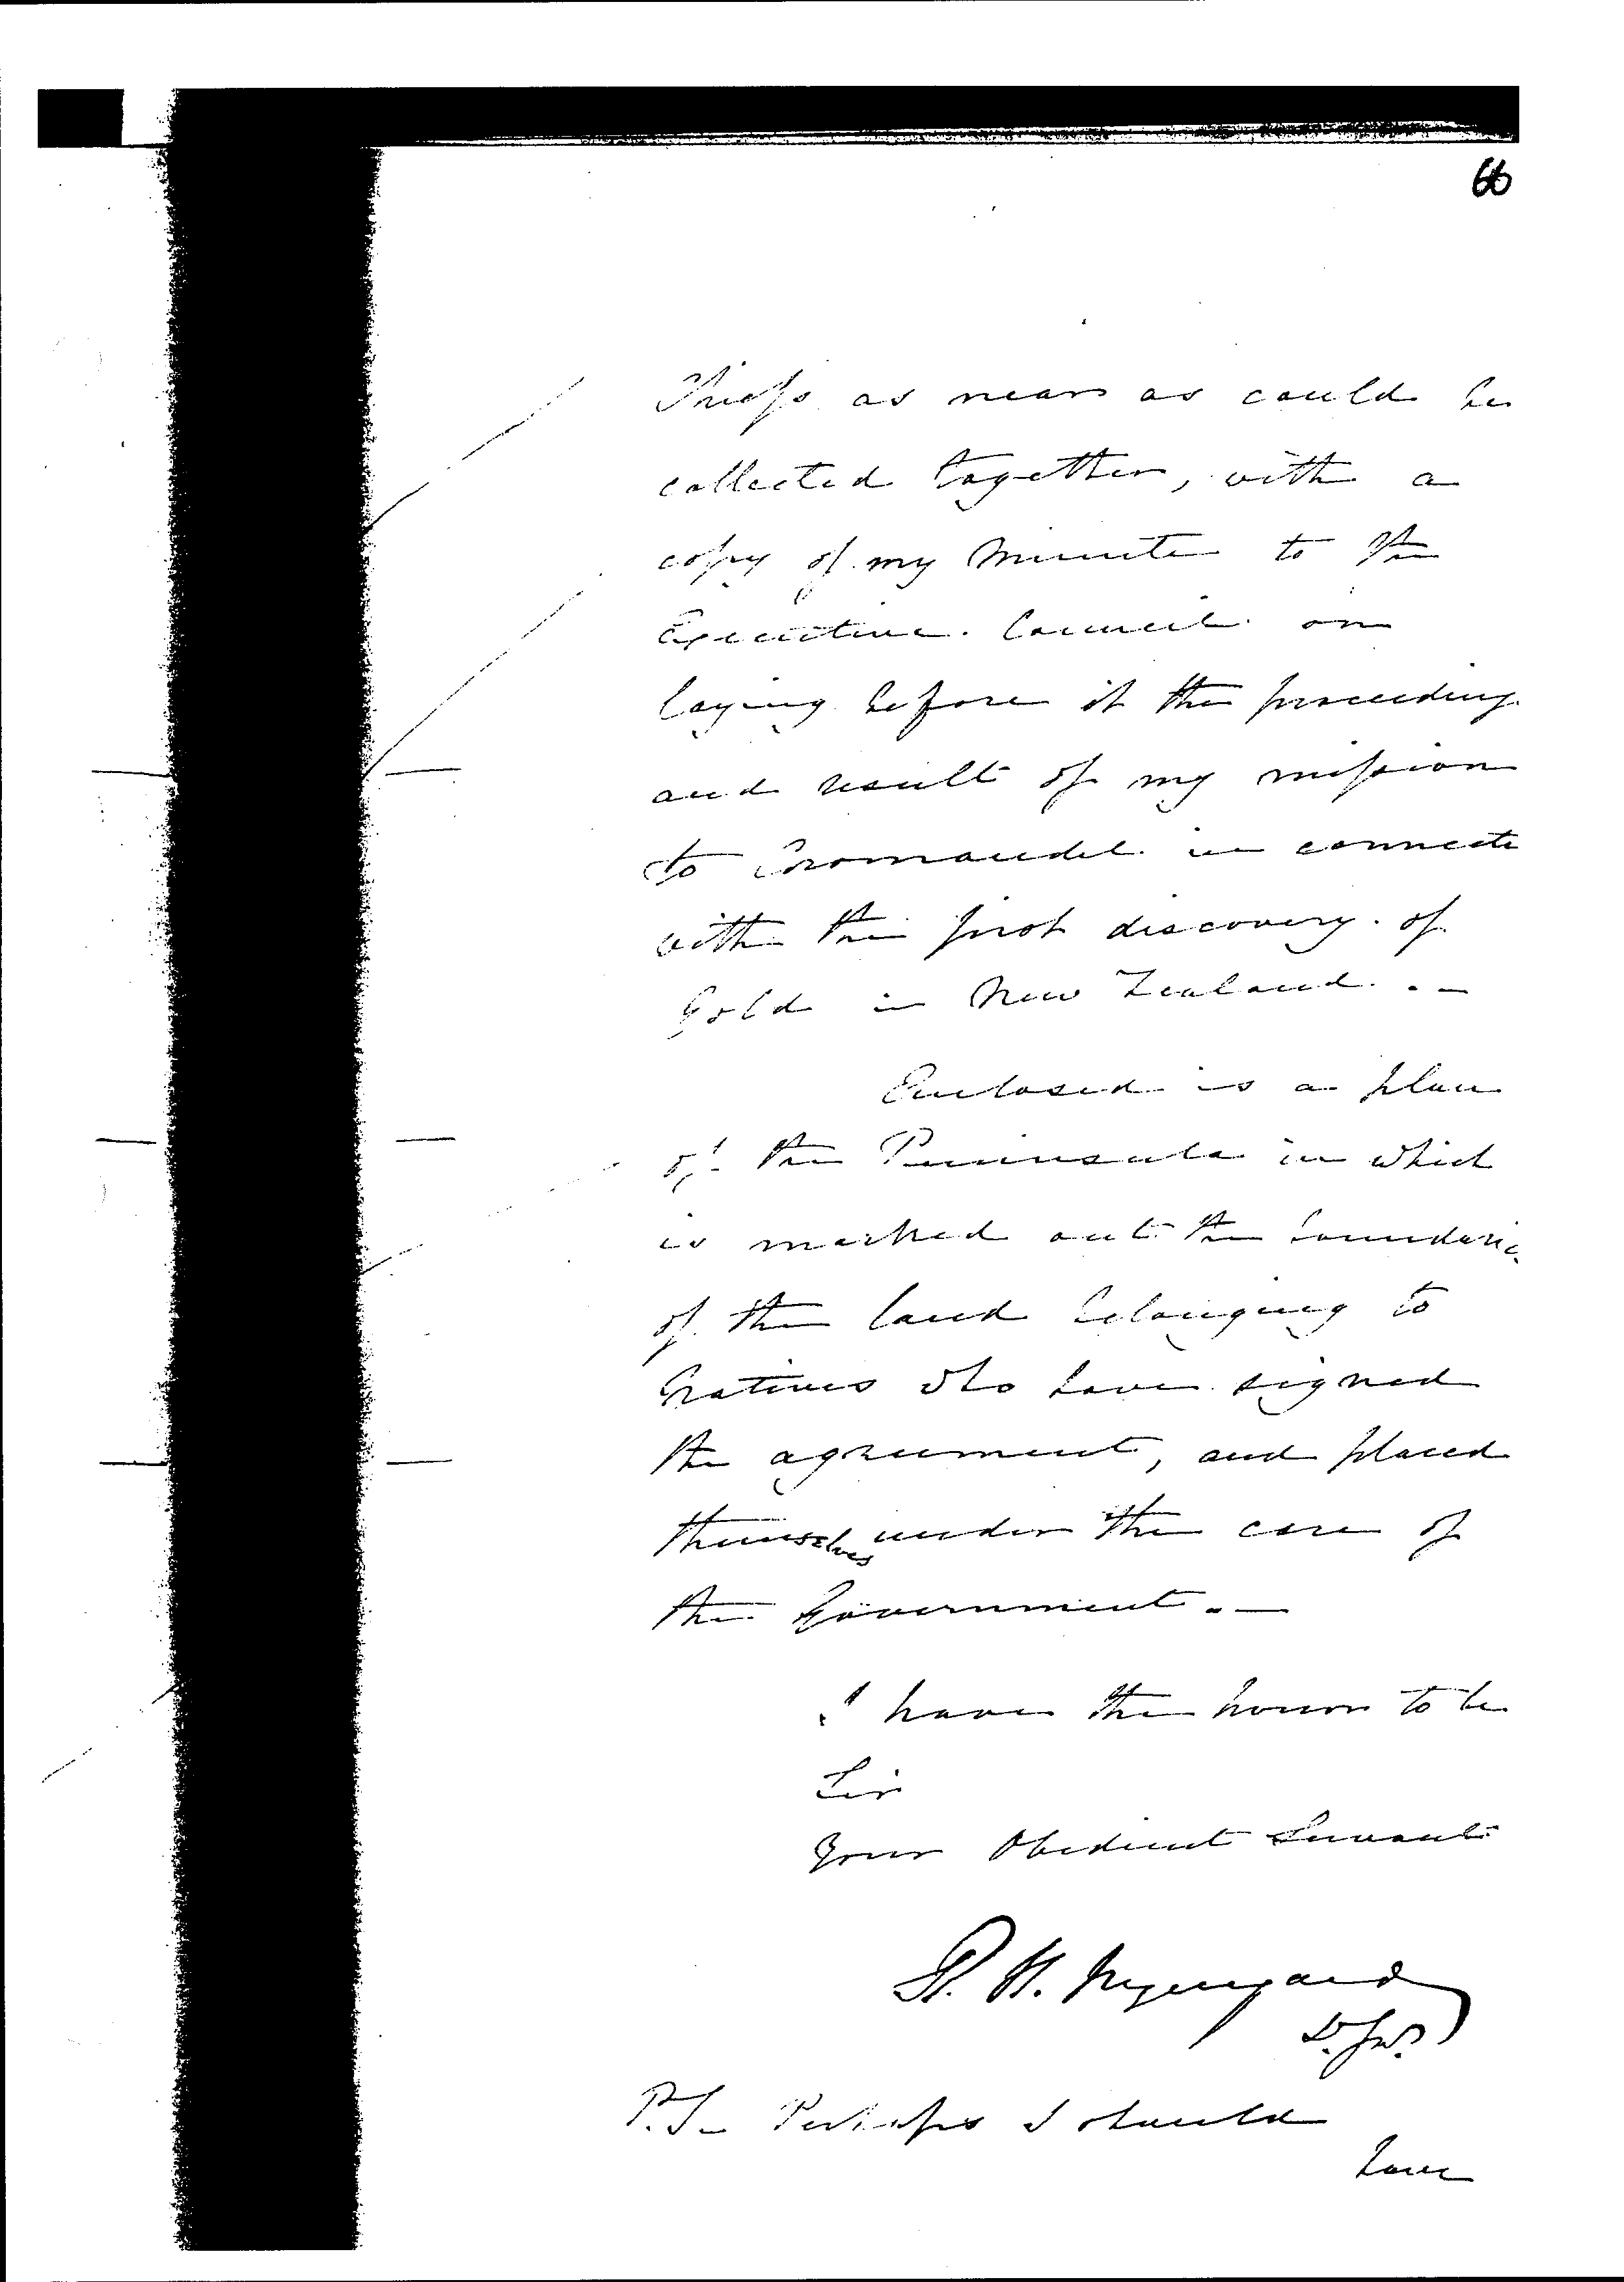 66
Chiefs as near as could be
collected together, with a
copy of my Minute to the
Executive Council on
laying before it the proceeding
and result of my mission
to Coromandel in connecti
with the first discovery of
Gold in New Zealand. –
Enclosed is a plan
of the Peninsula in which
is marked out the boundarie
of the land belonging to
Natives who have signed
the agreement, and placed
themselves under the care of
the Government. –
I have the honor to be
Sir
Your Obedient Servant
R. H. Wynyard
P.S – Perhaps I should
have